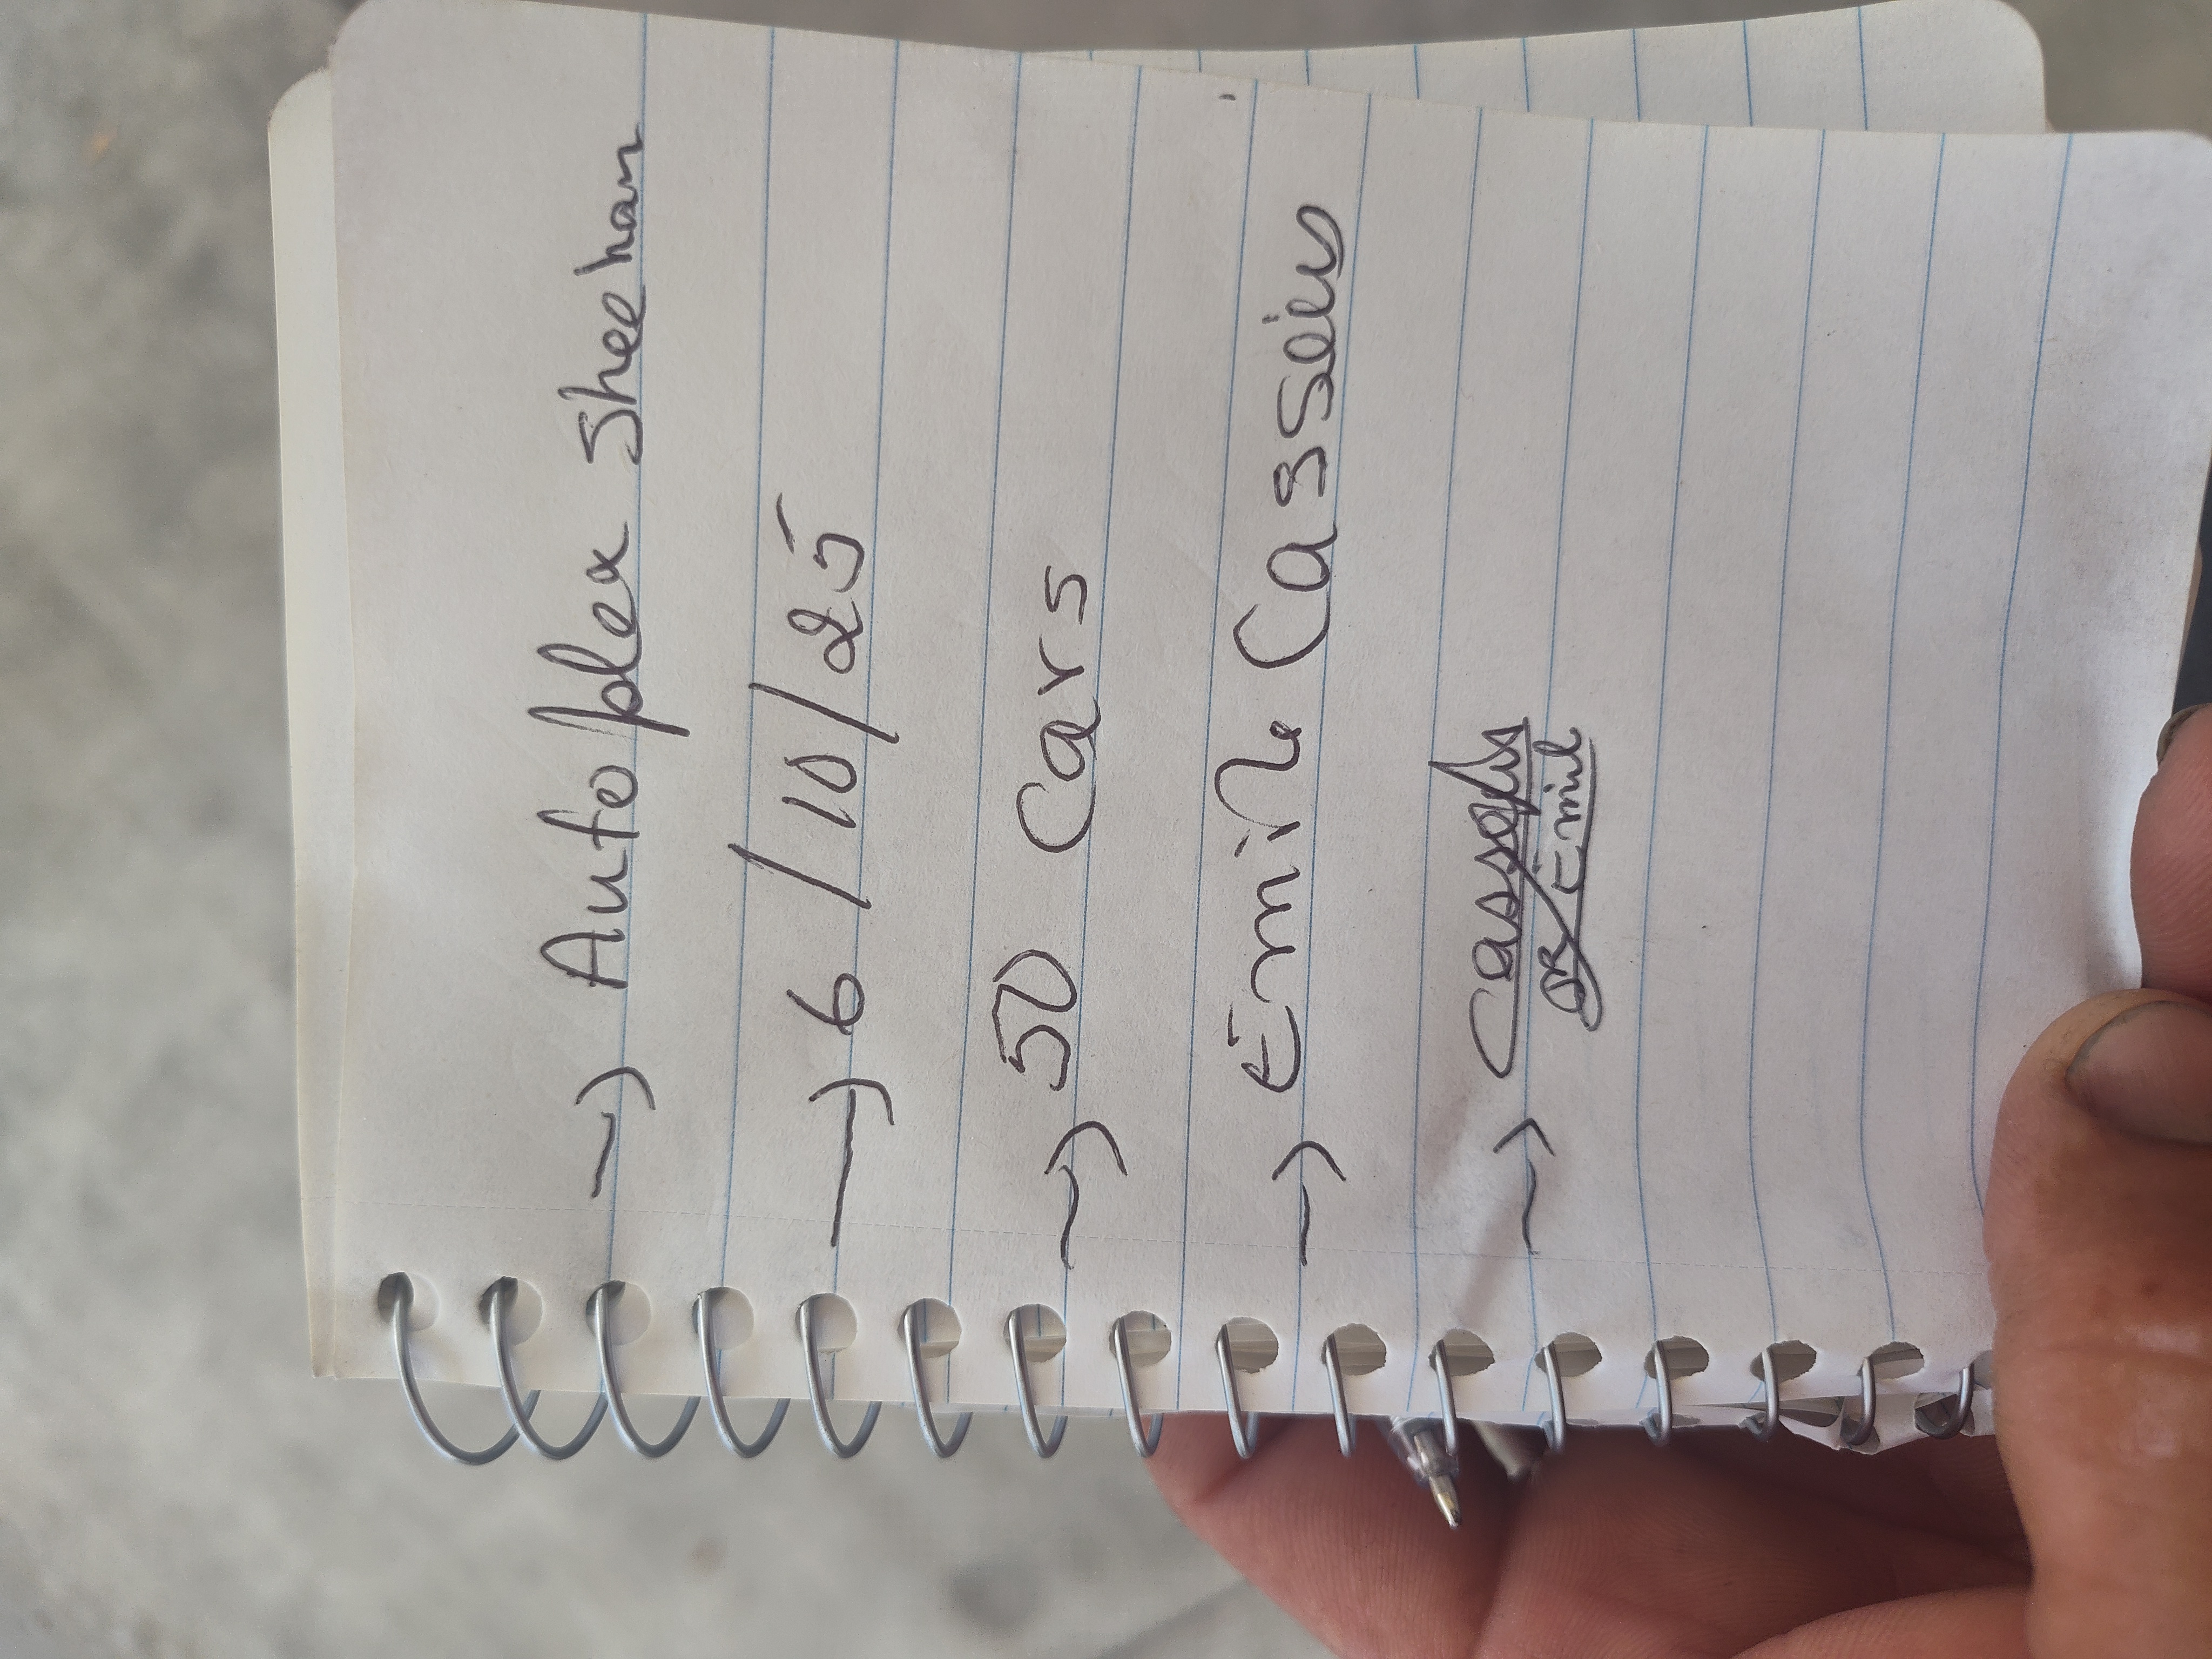 → Autoplex Sheehan
→ 6/10/25
→ 50 Cars
→ Emil Casseus
→ Casseus
DR Emil